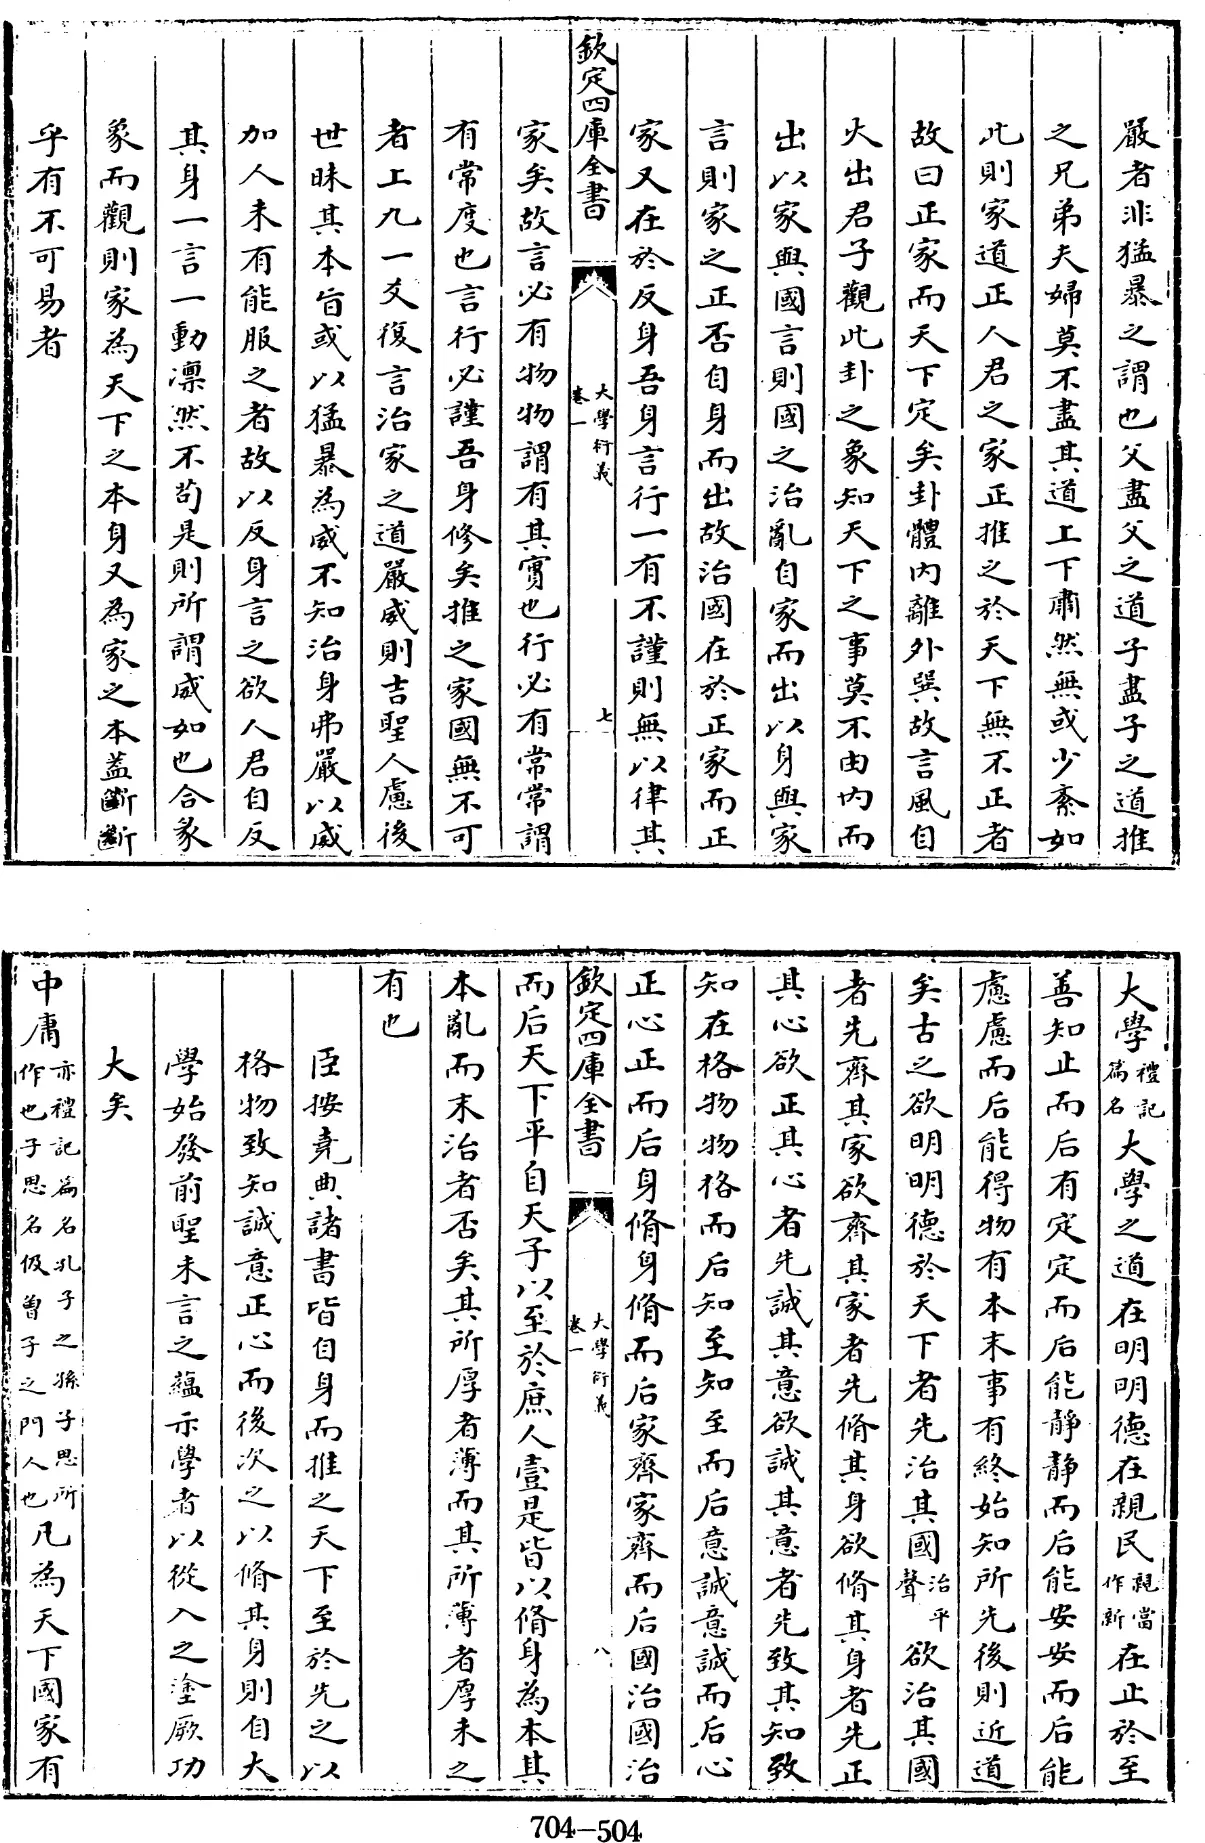 嚴者非猛暴之謂也父盡父之道子盡子之道推
之兄弟夫婦莫不盡其道上下肅然無或少紊如
此則家道正人君之家正推之於天下無不正者
故曰正家而天下定矣卦體内離外巽故言風自
火出君子觀此卦之象知天下之事莫不由内而
出以家與國言則國之治亂自家而出以身與家
言則家之正否自身而出故治國在於正家而正
家又在於反身吾身言行一有不謹則無以律其
欽定四庫全書
大學衍義
卷一
七
家矣故言必有物物謂有其實也行必有常常謂
有常度也言行必謹吾身修矣推之家國無不可
者上九一爻復言治家之道嚴威則吉聖人慮後
世昧其本旨或以猛暴為威不知治身弗嚴以威
加人未有能服之者故以反身言之欲人君自反
其身一言一動凛然不苟是則所謂威如也合彖
象而觀則家為天下之本身又為家之本蓋斷斷
乎有不可易者
大學禮記篇名大學之道在明明德在親民親當作新在止於至
善知止而后有定定而后能靜靜而后能安安而后能
慮慮而后能得物有本末事有終始知所先後則近道
矣古之欲明明德於天下者先治其國治平聲欲治其國
者先齊其家欲齊其家者先脩其身欲脩其身者先正
其心欲正其心者先誠其意欲誠其意者先致其知致
知在格物物格而后知至知至而后意誠意誠而后心
正心正而后身脩身脩而后家齊家齊而后國治國治
欽定四庫全書
大學衍義
卷一
八
而后天下平自天子以至於庶人壹是皆以脩身為本其
本亂而末治者否矣其所厚者薄而其所薄者厚未之
有也
臣按堯典諸書皆自身而推之天下至於先之以
格物致知誠意正心而後次之以脩其身則自大
學始發前聖未言之藴示學者以從入之塗厥功
大矣
中庸亦禮記篇名孔子之孫子思所作也子思名伋曾子之門人也凡為天下國家有
704-504